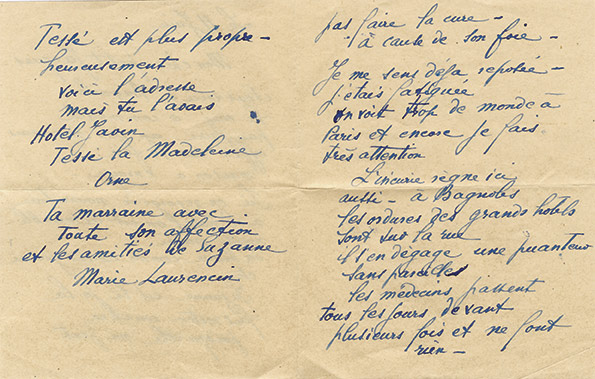 Tessé est plus propre —
heureusement
voici l'adresse
mais tu l'avais
Hotel Javin
Tessé la Madeleine
Orne
Ta marraine avec
toute son affection
et les amitiés de Suzanne
Marie Laurencin
pas faire la cure —
à cause de son foie —
Je me sens déja reposée —
J'étais fatiguée
on voit trop de monde à
Paris et encore je fais
très attention
L'incurie règne ici
aussi — à Bagnoles
les ordures des grands hotels
sont sur la rue
il s'en dégage une puanteur
sans pareilles
les médecins passent
tous les jours devant
plusieurs fois et ne font
rien —